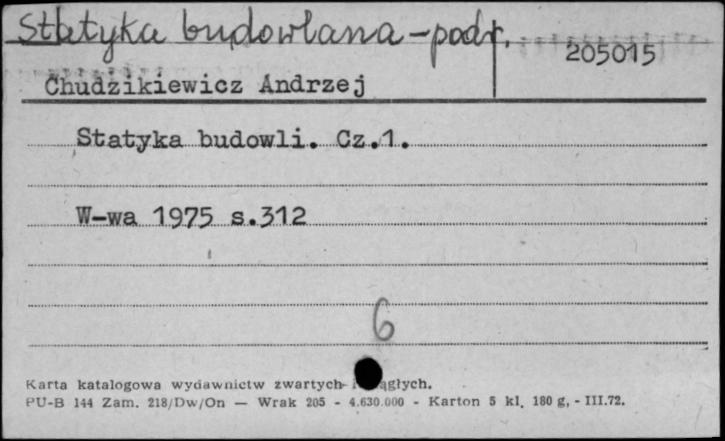 Statyka budowlana - podr.
205015
Chudzikiewicz Andrzej
Statyka budowli. Cz.1.
W-wa 1975 s.312
6
Karta katalogowa wydawnictw zwartych i ciągłych.
PU-B 144 Zam. 218/Dw/On — Wrak 205 - 4.630.000 - Karton 5 kl. 180 g, - III.72.